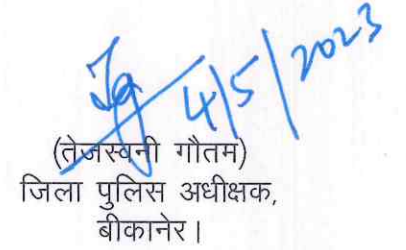 4/5/2023
(तेजस्वनी गौतम)
जिला पुलिस अधीक्षक,
बीकानेर।